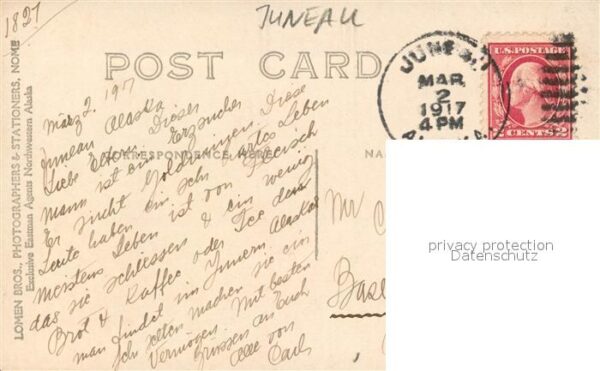 1827
JUNEAU
POST CARD
LOMEN BROS., PHOTOGRAPHERS & STATIONERS, NOME
Exclusive Eastman Agents Northwestern Alaska
CORRESPONDENCE HERE
NA
JUNEAU
MAR
2
1917
4 PM
ALASKA
U.S. POSTAGE
CENTS 2
März 2. 1917
Juneau Alaska
Liebe Eltern. Dieser
Mann ist ein Erzsucher
Er sucht Goldschürfungen. Diese
Leute haben ein sehr Leben
meistens Leben ist von Fleisch
das sie schliessen & ein wenig
Brot & Kaffee oder Tee denn
man findet im Innern Alaskas
sehr selten machen sie ein
Vermögen. Mit besten
Grüssen an Euch
Alle von
Carl
Mr C
Base
privacy protection
Datenschutz